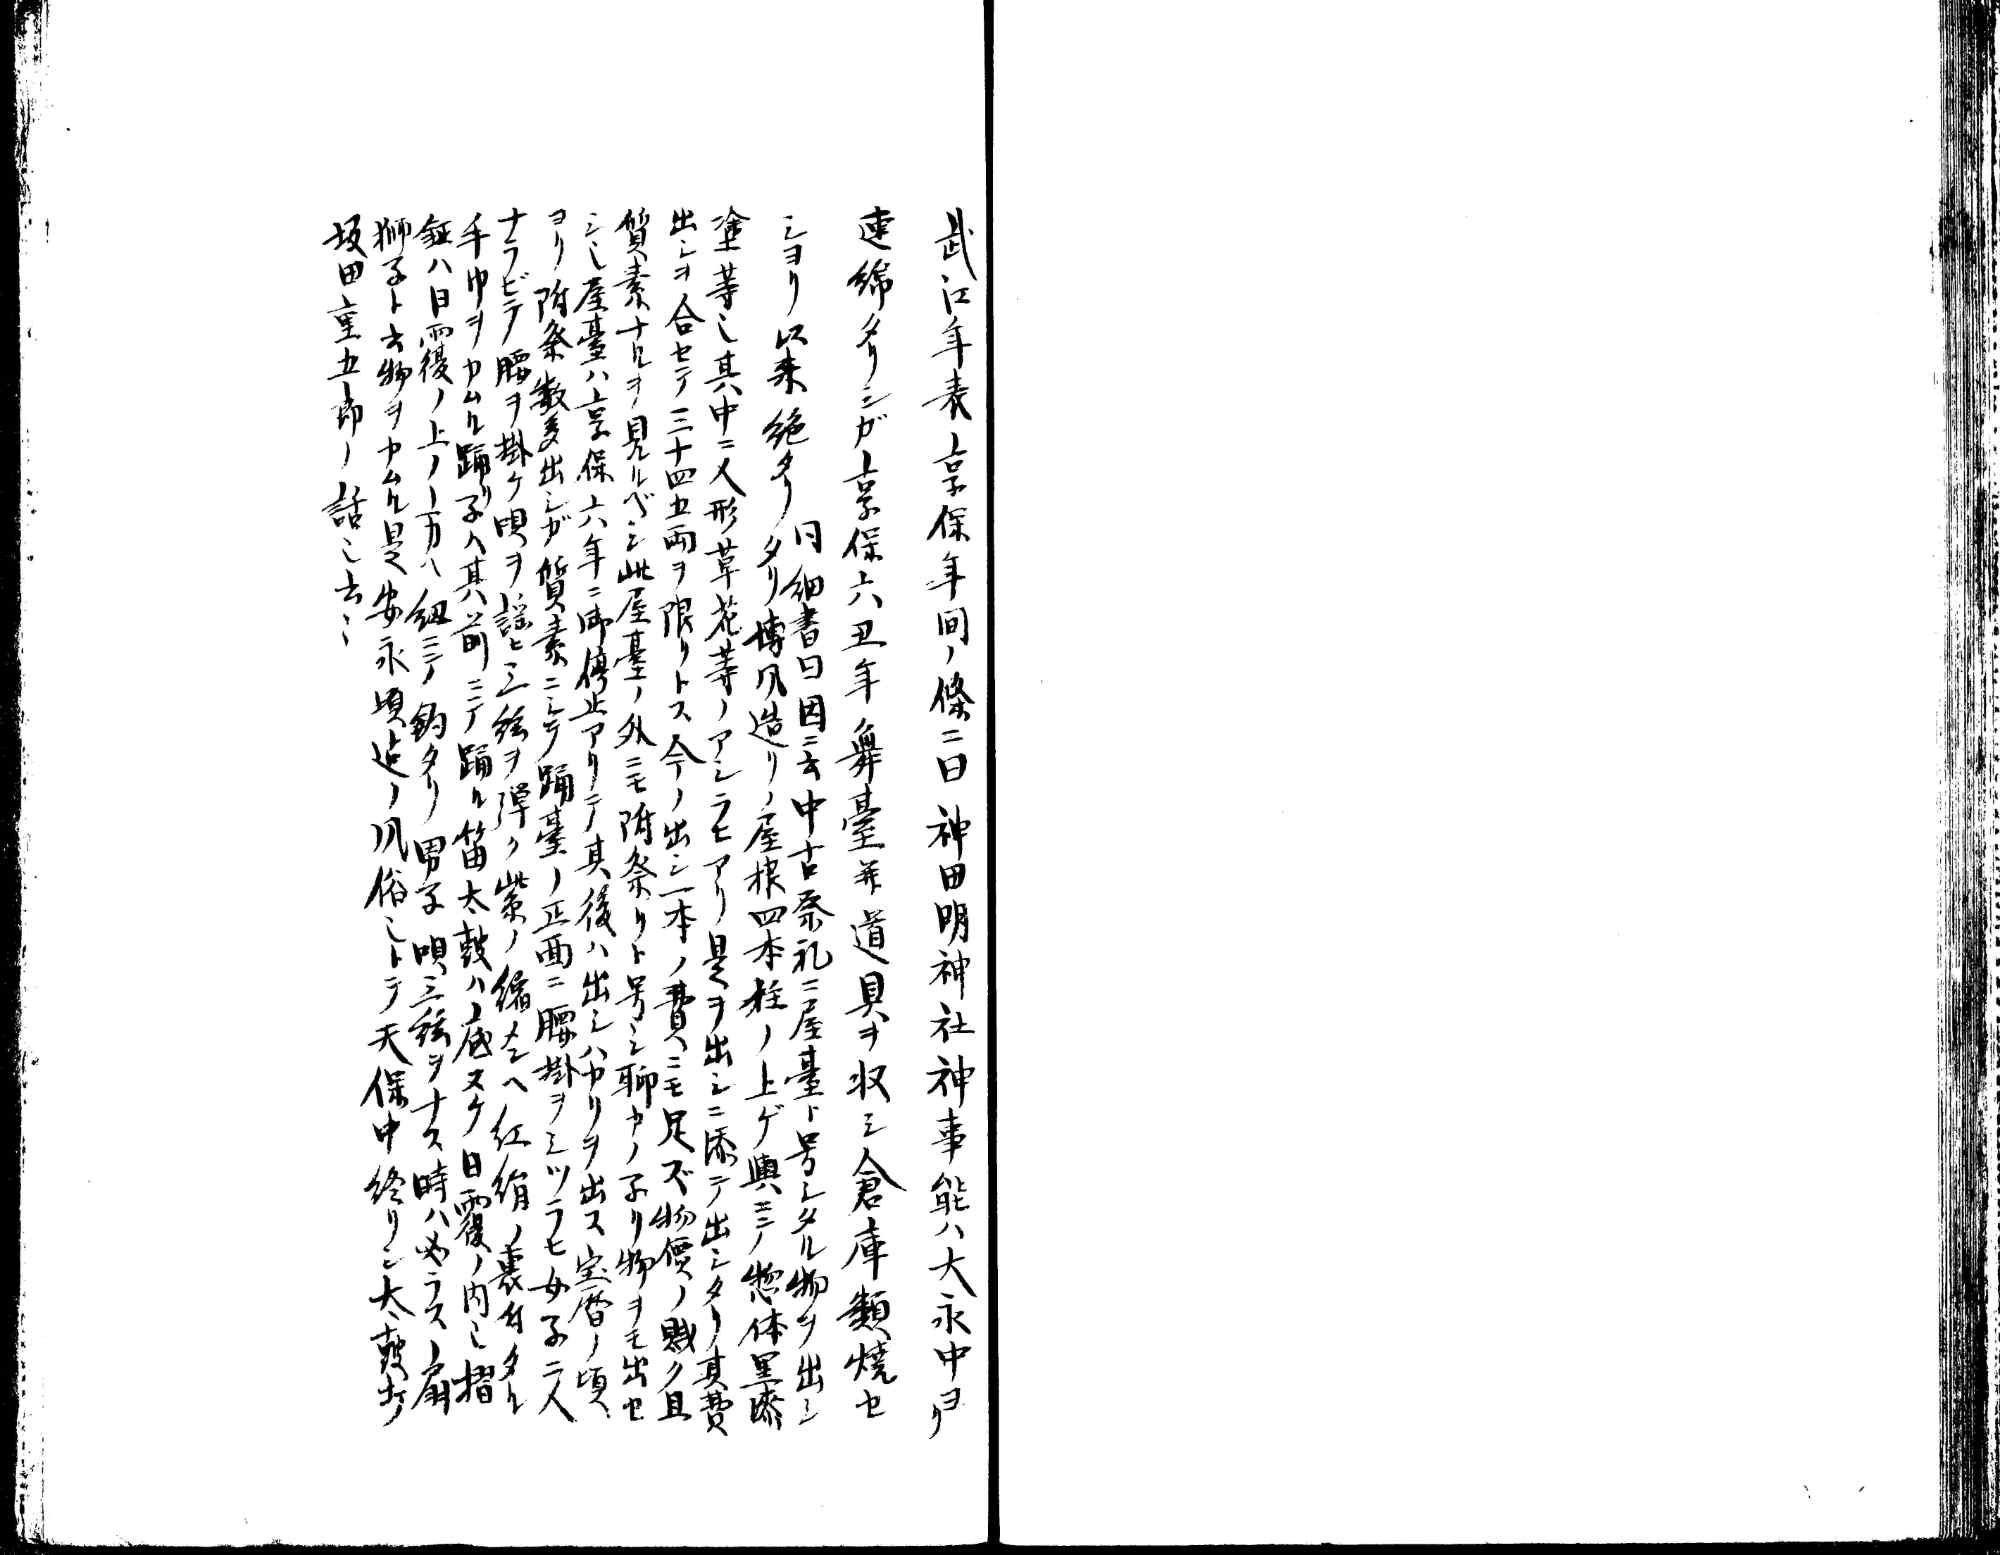 武江年表享保年间ノ條ニ曰神田明神社神事能ハ大永中ヨリ
連綿タリシガ享保六丑年舞臺并道具ヲ収シ倉庫類焼セ
シヨリ以来絶タリ
同細書曰因ニ云中古祭礼ニ屋臺ト号シタル物ヲ出シ
タリ博風造リノ屋根四本柱ノ上ゲ輿ニテ惣体黒漆
塗等也其中ニ人形草花等ノアシラヒアリ是ヲ出シニ添テ出シタリ其費
出シヲ合セテ三十四五両ヲ限リトス今ノ出シ一本ノ費ニモ足ズ物價ノ賤ク且
質素ナルヲ見ルベシ此屋臺ノ外ニモ附祭リト号シ聊カノ子リ物ヲモ出セ
シ也屋臺ハ享保六年ニ御停止アリテ其後ハ出シハカリヲ出ス宝暦ノ頃
ヨリ附祭数多出シガ質素ニシテ踊臺ノ正面ニ腰掛ヲシツラヒ女子二人
ナラビテ腰ヲ掛ケ唄ヲ謡ヒ三絃ヲ弾ク紫ノ縮メンヘ紅絹ノ裏付タル
手巾ヲカムル踊リ子ハ其前ニテ踊ル笛太鼓ハ底ヌケ日覆ノ内也摺
鉦ハ日覆ノ上ノ方ヘ紐ニテ釣タリ男子唄三絃ヲナス時ハ必ラス扇
獅子ト云物ヲカムル是安永頃迄ノ風俗也トテ天保中終リシ太鼓打
坂田重五郎ノ話也云々